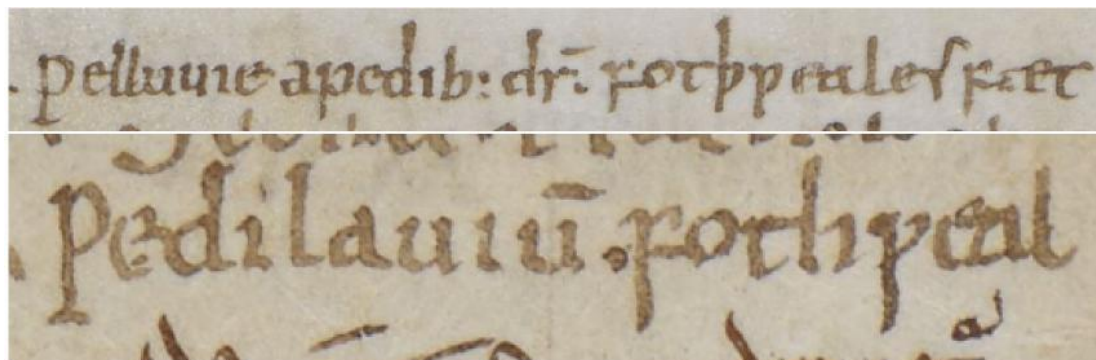 pelluuie apedib: dr̄. fotþƿealeſ fæt
Pedilauiū. fothƿeal